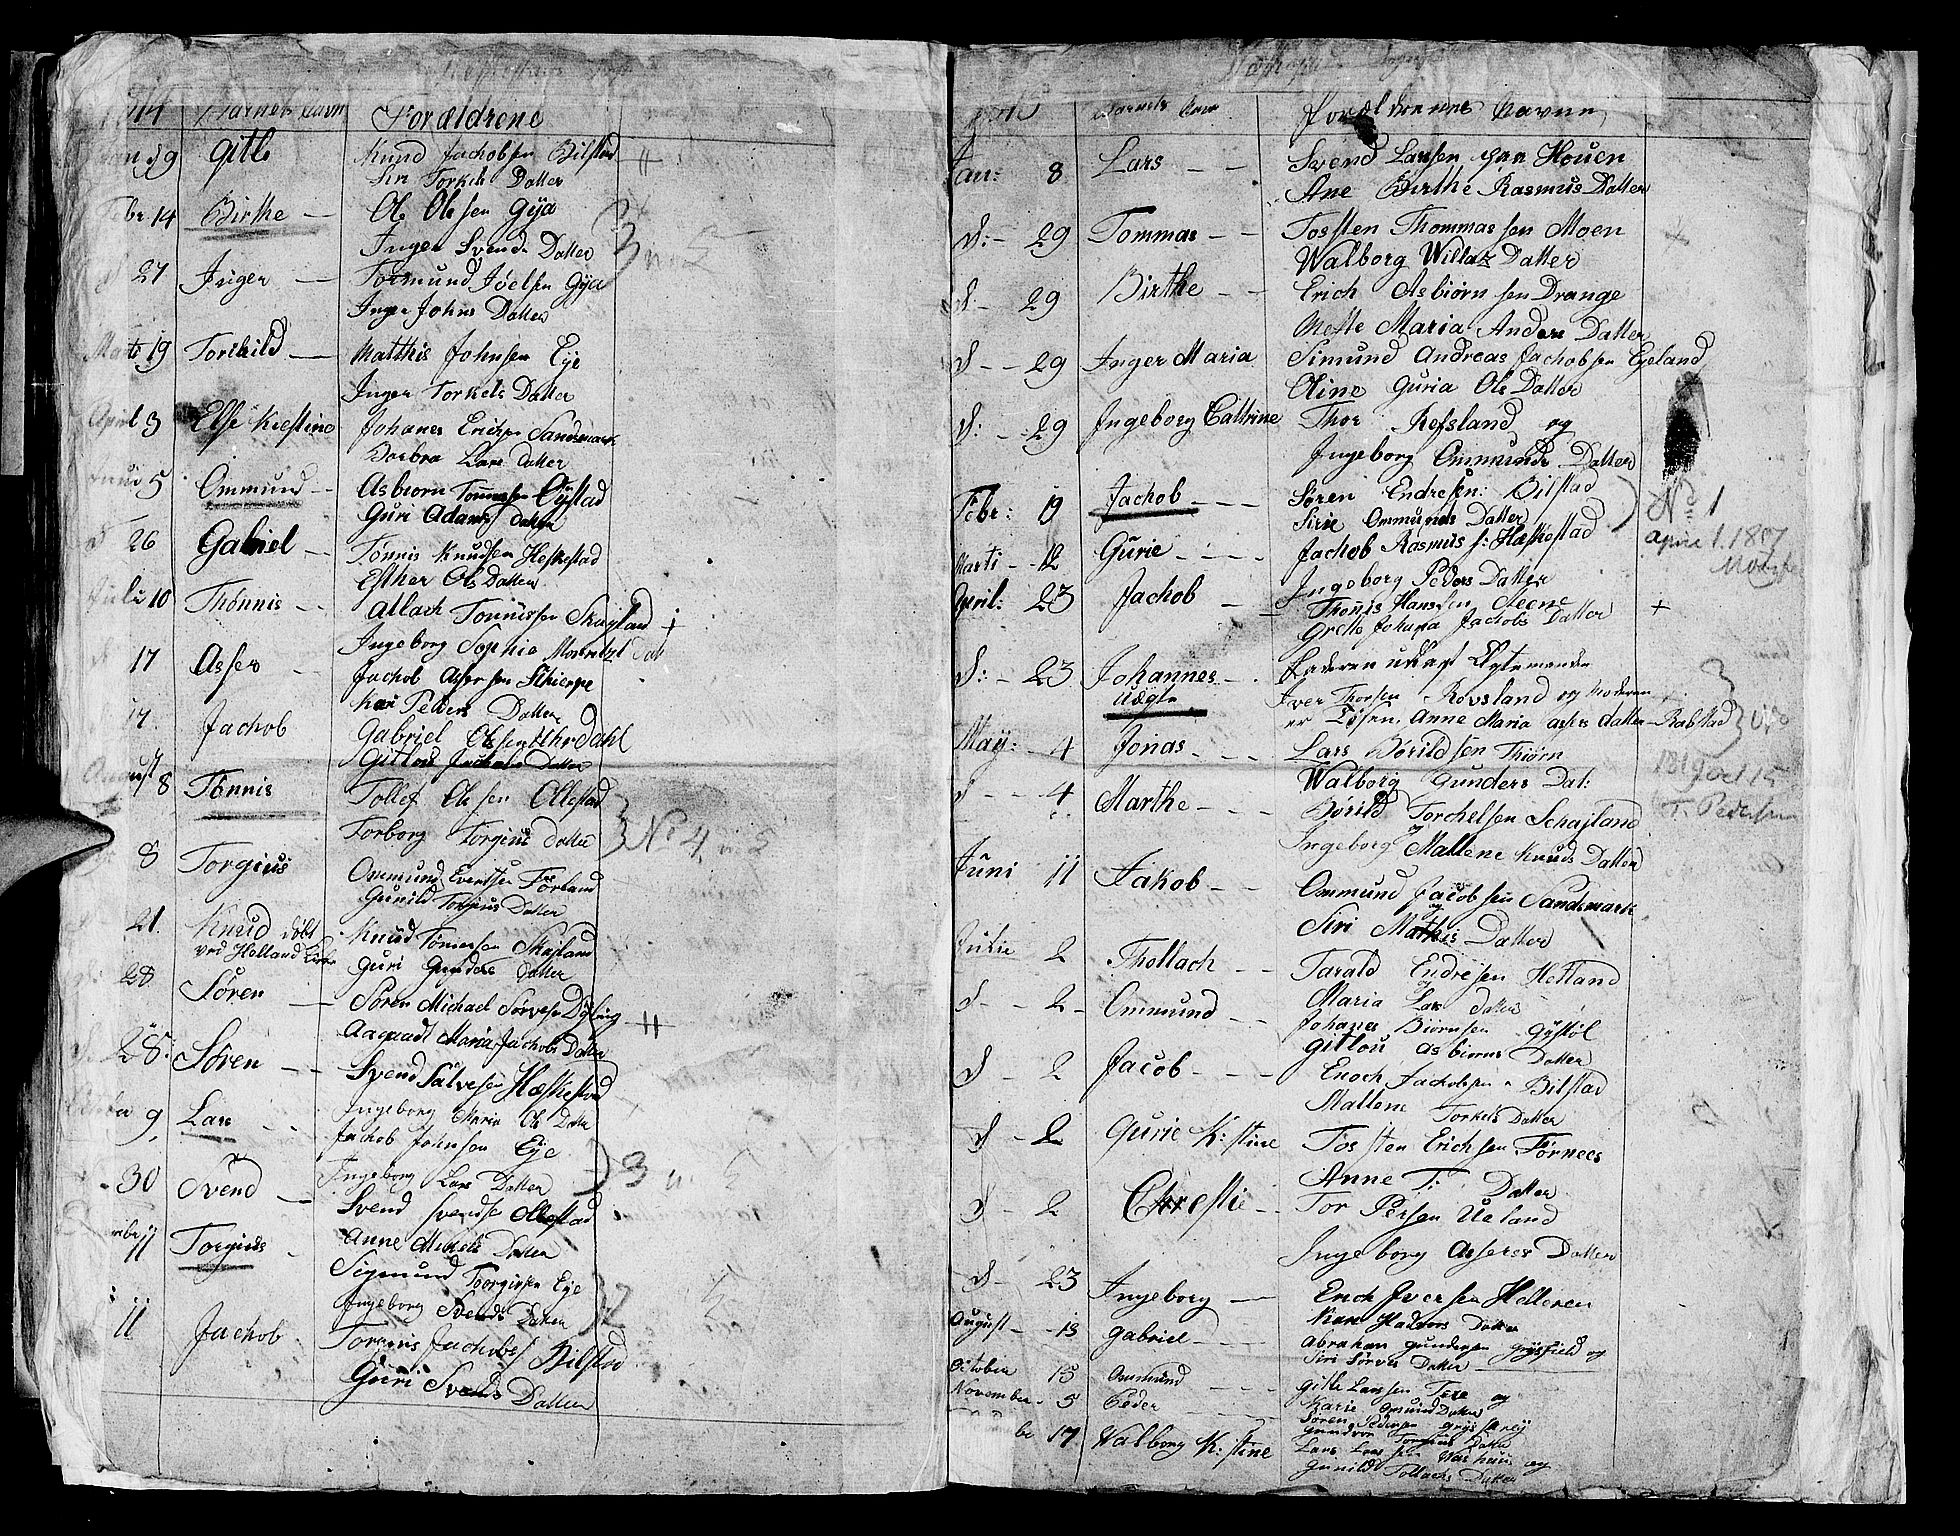 Barnets Navn
Forældrene
9 Gitle
Knud Jachobsen Bilstad
Siri Torkels Datter
Febr 14 Birthe
Ole Olsen Gya
Inger Svends Datter
3
27 Inger
Tormund Joelsen Gya
Inger Johns Datter
19 Torkild
Matthis Johnsen Eye
Inger Torkels Datter
April 3 Else Kiestine
Johanes Erichsen Sandsmark
Barbra Lars Datter
Juni 5 Ommund
Asbiorn Tønnesen Eystad
Guri Adams Datter
26 Gabriel
Tønnis Knudsen Heskestad
Esther Ols Datter
Juli 10 Thønnis
Atlach Tønnissen Skayland +
Ingeborg Sophie
17 Asser
Jachob Assersen Skierpe
Kari Peders Datter
17 Jachob
Gabriel Olssen Uhrdahl
Gitlou Jachobs Datter
August 8 Tønnis
Tollef Olssen Ollestad
Torborg Torgius Datter
No 4
8 Torgius
Ommund Evertsen Førland
Gunild Torgius Datter
21 Knud døbt
ved Helland Kirke
Knud Tønnesen Skajland
Guri Gunders Datter
28 Søren
Søren Michael Sørvesen Dybing
Aagaadt Maria Jachobs Datter
28 Søren
Svend Salvesen Hæskestad
Ingeborg Maria Ols Datter
9 Lars
Jachob Johnsen Eye
Ingeborg Lars Datter
3
30 Svend
Svend Svendsen Ollestad
Anne Michels Datter
11 Torgius
Sigmund Toorgiussen Eye
Ingeborg Svends Datter
2
11 Jachob
Torgius Jachobs Bilstad
Guri Svends Datter
Barnets Navn
Forældrenes Navne
Jan: 8 Lars
Svend Larssen Houen
Ane Birthe Rasmus Datter
d: 29 Tommas
Tosten Thommassen Moen
Walborg Willaz Datter
d 29 Birthe
Erich Asbiørnsen Drange
Mette Maria Anders Datter
d 29 Inger Maria
Simund Andreas Jachobsen Eyeland
Oline Guria Ols Datter
d: 29 Ingeborg Cathrine
Thor Refsland og
Ingeborg Ommunds Datter
Febr: 19 Jachob
Søren Endresen: Bilstad
Sirie Ommunds Datter
No 1
Marti 12 Gurie
Jachob Rasmus s: Hæskestad
Ingeborg Peders Datter
April 1.1807
April: 23 Jachob
Thonis Hanssen Steene +
Grethe Johana Jachobs Datter
d: 23 Johannes
Uægte
Faderen udlagt Ægtemanden
Iver Thorsen Rovsland og Moderen
er Løsen, Anne Maria Aslas Datter Rabstad
May: 4 Jonas
Lars Børildsen Thiørn
Walborg Gunders Dat:
d 4 Marthe
Børild Torchelsen Schajland
Ingeborg Mallene Knuds Datter
T. Pedersen
Juni 11 Jakob
Ommund Jacobsen Sandsmark
og
Siri Mathis Datter
Julie 2 Thollach
Tarald Endresen Hetland
og
Maria Lars Datter
d 2 Ommund
Johanes Biørnsen Gystøl
Gitlou Asbiorns Datter
d 2 Jacob
Enoch Jachobsen Bilstad
Mallene Torkels Datter
d 2 Gurie K:stine
Tossten Erichsen Førnees
Anne T: Datter
d 2 Chrestie
Tor Persen Ueland
Ingeborg Assers Datter
d 23 Ingeborg
Erich Iversen Helleren
Kari Halvors Datter
August 13 Gabriel
Abraham Gundersen Gysfield og
Siri Sørves Datter
October 15 Ommund
Gitle Larssen Teve og
Karie Omund Datter
November 5 Peder
Søren Pedersen
Gundvor Torgius Datter
17 Walborg K:stine
Lars Larssen og
Gunild Tollachs Datter